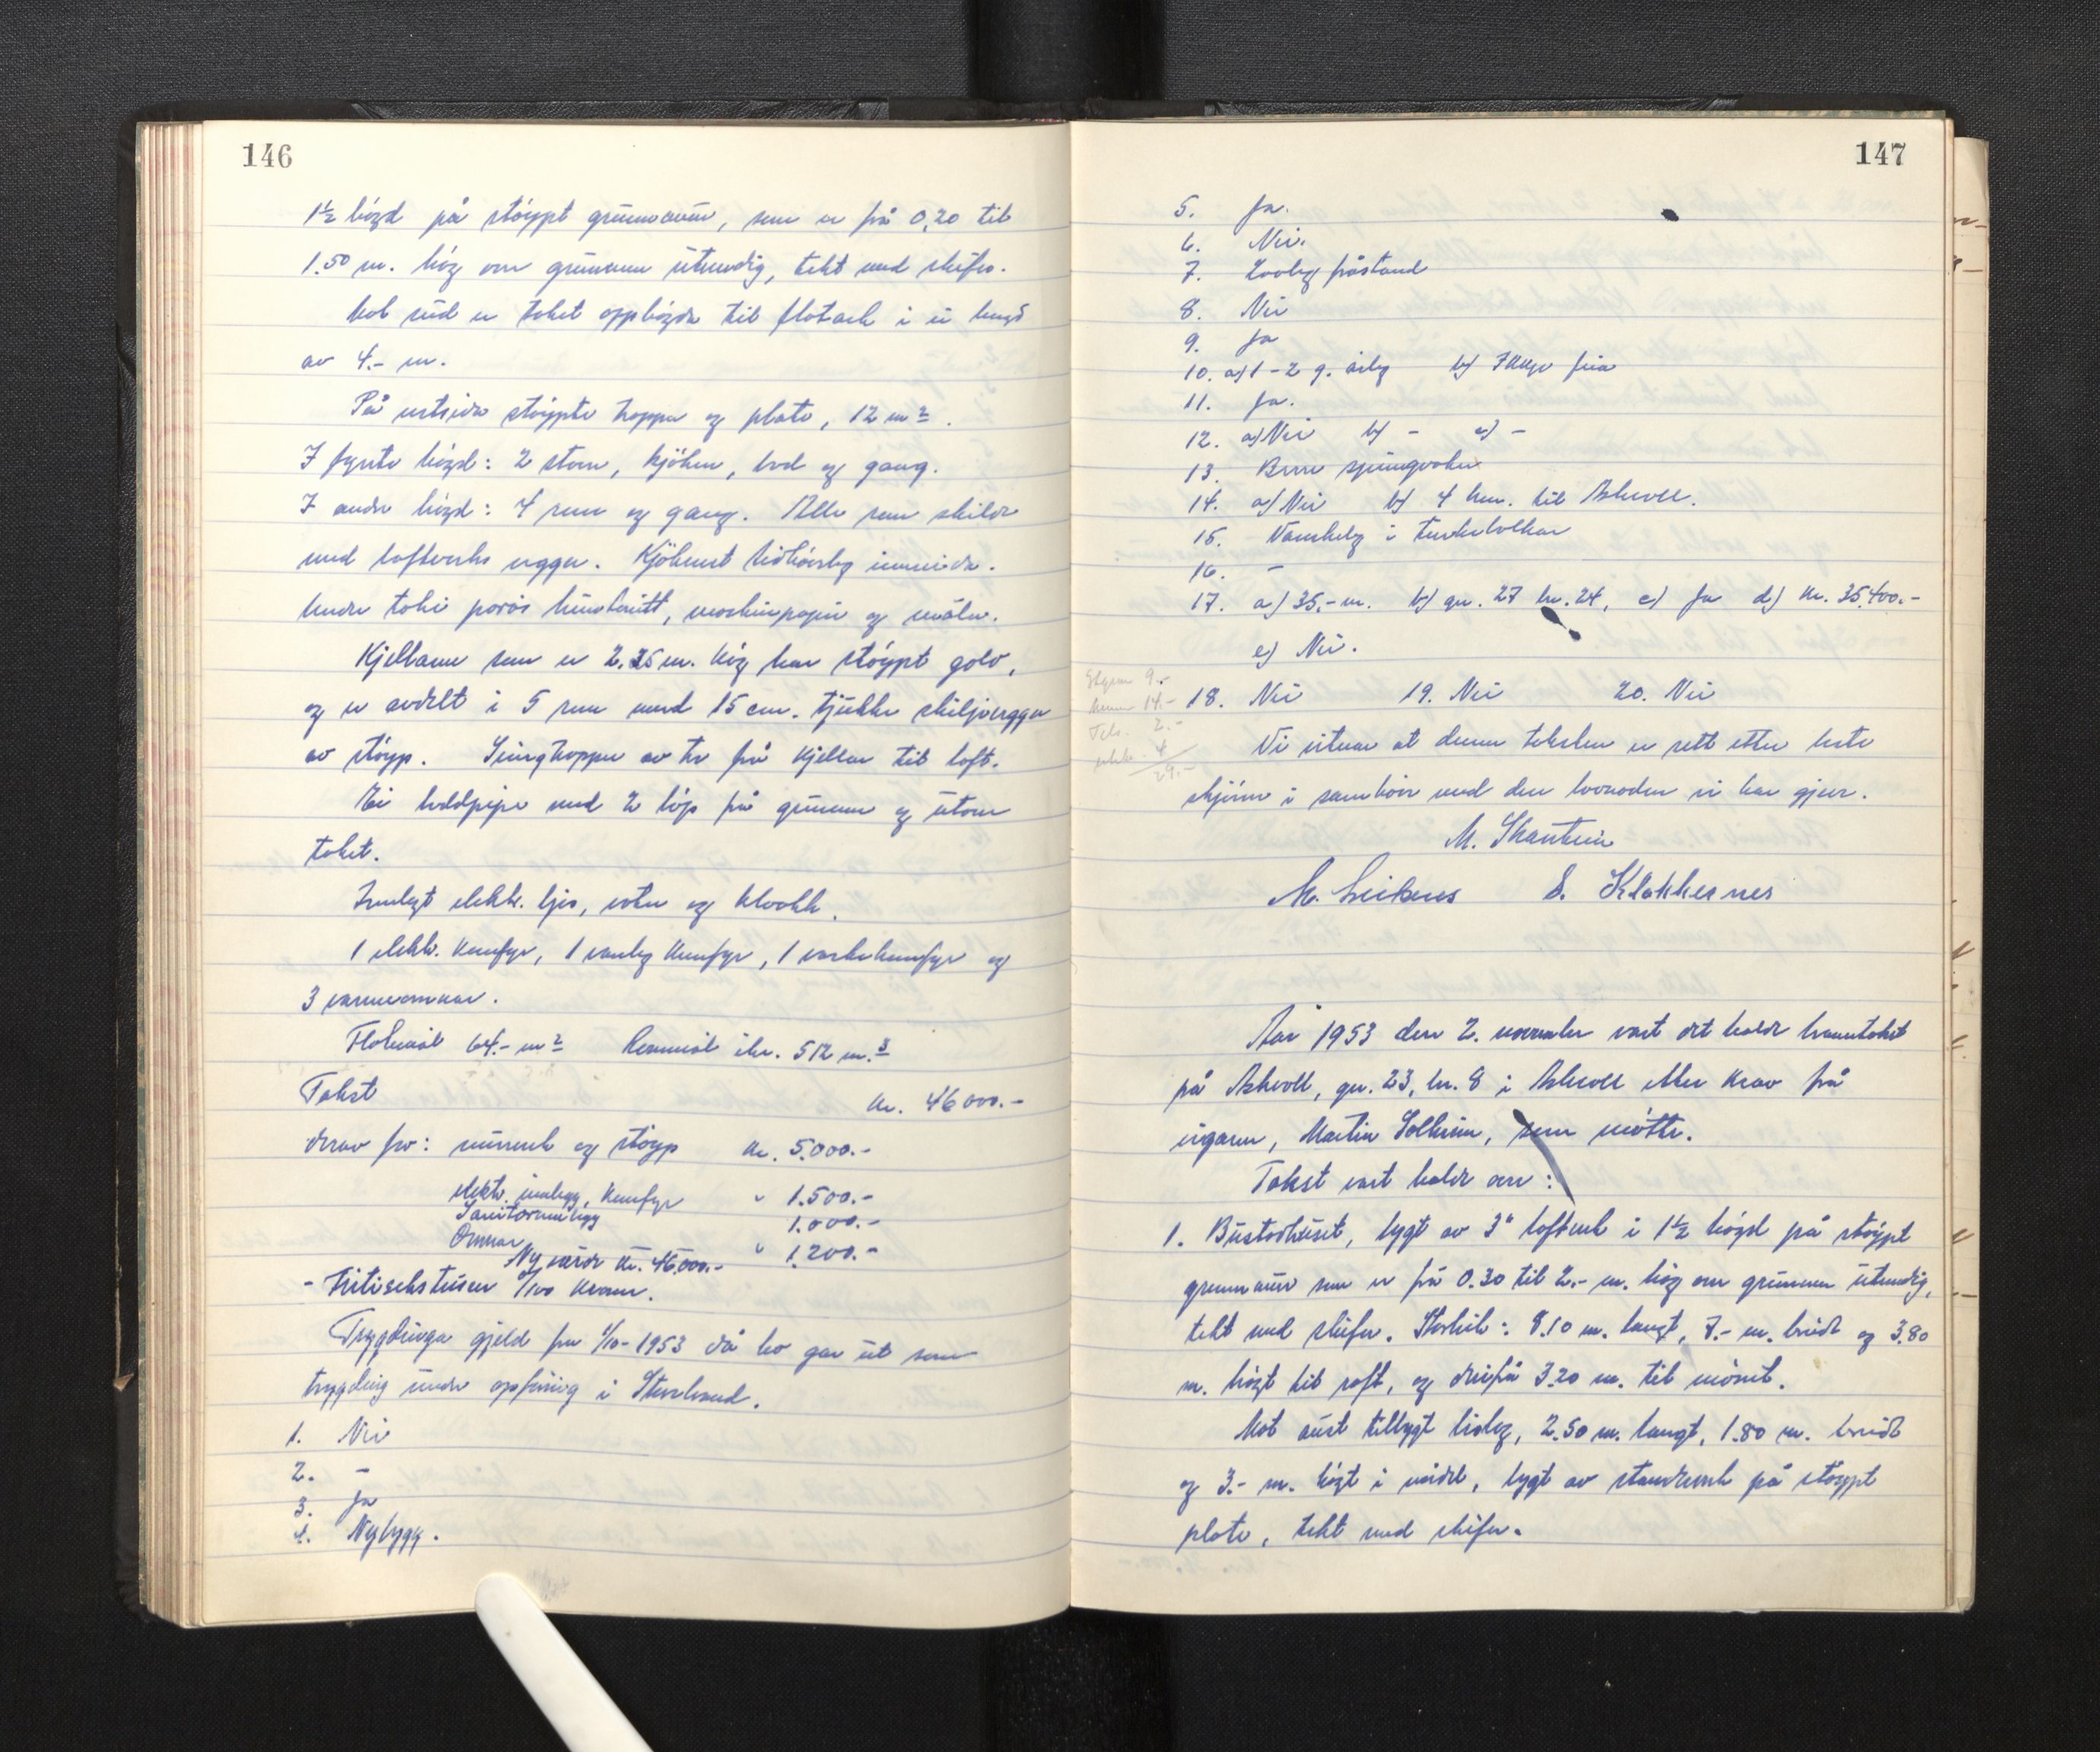 146
1½ högd på støypt grunnmur, som er frå 0,20 til
1.50 m. høg over grunnen utvendig, tekt med skifer.
Mot sud er taket opphøgda til flatark i ei lengd
av 4.- m.
På vestsida støypte trapper og plate, 12 m².
I fyrste høgd: 2 stover, kjøken, bod og gang.
I andre høgd: 4 rom og gang. Alle rom skilde
med lofteverks vegger. Kjøkenet tidhøveleg innreida.
Under taki porøs huntonitt, maskinpapir og måla.
Kjellaren som er 2.25 m. høg har støypt golv,
og er avdelt i 5 rom med 15 cm. tjukke skiljevegger
av støyp. Svingtrapper av tre frå kjellar til loft.
Ei teglpipe med 2 løp frå grunnen og utom
taket.
Innlagt elektr. ljos, vatn og kloakk.
1 elektr. komfyr, 1 vanleg komfyr, 1 vaskekomfyr og
3 varmeomnar.
Flatemål 64.- m² Romemål ikr. 512 m.³
Takst kr. 46000.-
derav for: murverk og støyp kr. 5.000.-
elektr. innlegg, komfyr " 1.500.-
Sanitæranlegg 1.000.-
Omnar " 1.200.-
Ny verde kr. 46.000.-
- Fritidsklausen 0/100 kroner.
Trygdinga gjeld frå 1/10-1953 då ho gar ut som
trygding under oppføring i Storebrand.
1. Nei
2. -
3. Ja
4. Nybygg.
147
5. Ja.
6. Nei.
7. Lovleg fråstand
8. Nei
9. Ja
10. a) 1-2 g. årleg b) Ikkje feia
11. Ja.
12. a) Nei b) - c) -
13. Berre springvatn
14. a) Nei b) 4 km. til Askvoll.
15. Vanskeleg i turkebolkar
16. -
17. a) 35.- m. b) gn. 27 br. 24, c) Ja d) kr. 35.400.-
e) Nei.
18. Nei 19. Nei 20. Nei
9.-
14.-
2.-
4
29.-
Vi vitnar at denne taksten er rett etter beste
skjønn i samhøve med den lovnaden vi har gjeve.
M. Skantein
S. Klakkernes
Aar 1953 den 2. november vart det halde branntakst
på Askvoll, gn. 23, br. 8 i Askvoll etter krav frå
eigaren, Martin Solheim, som møtte.
Takst vart halde over:
1. Bustadhuset, bygt av 3" loftverk i 1½ høgd på støypt
grunnmur som er frå 0.30 til 2.- m. høg over grunnen utvendig,
tekt med skifer. Storleik: 8.10 m. langt, 7.- m. breidt og 3.80
m. høgt til raft, og derifrå 3.20 m. til mønet.
Mot aust tilbygt bislag, 2.50 m. langt, 1.80 m. breidt
og 3.- m. høgt i middel, bygt av stenderverk på støypt
plate, tekt med skifer.